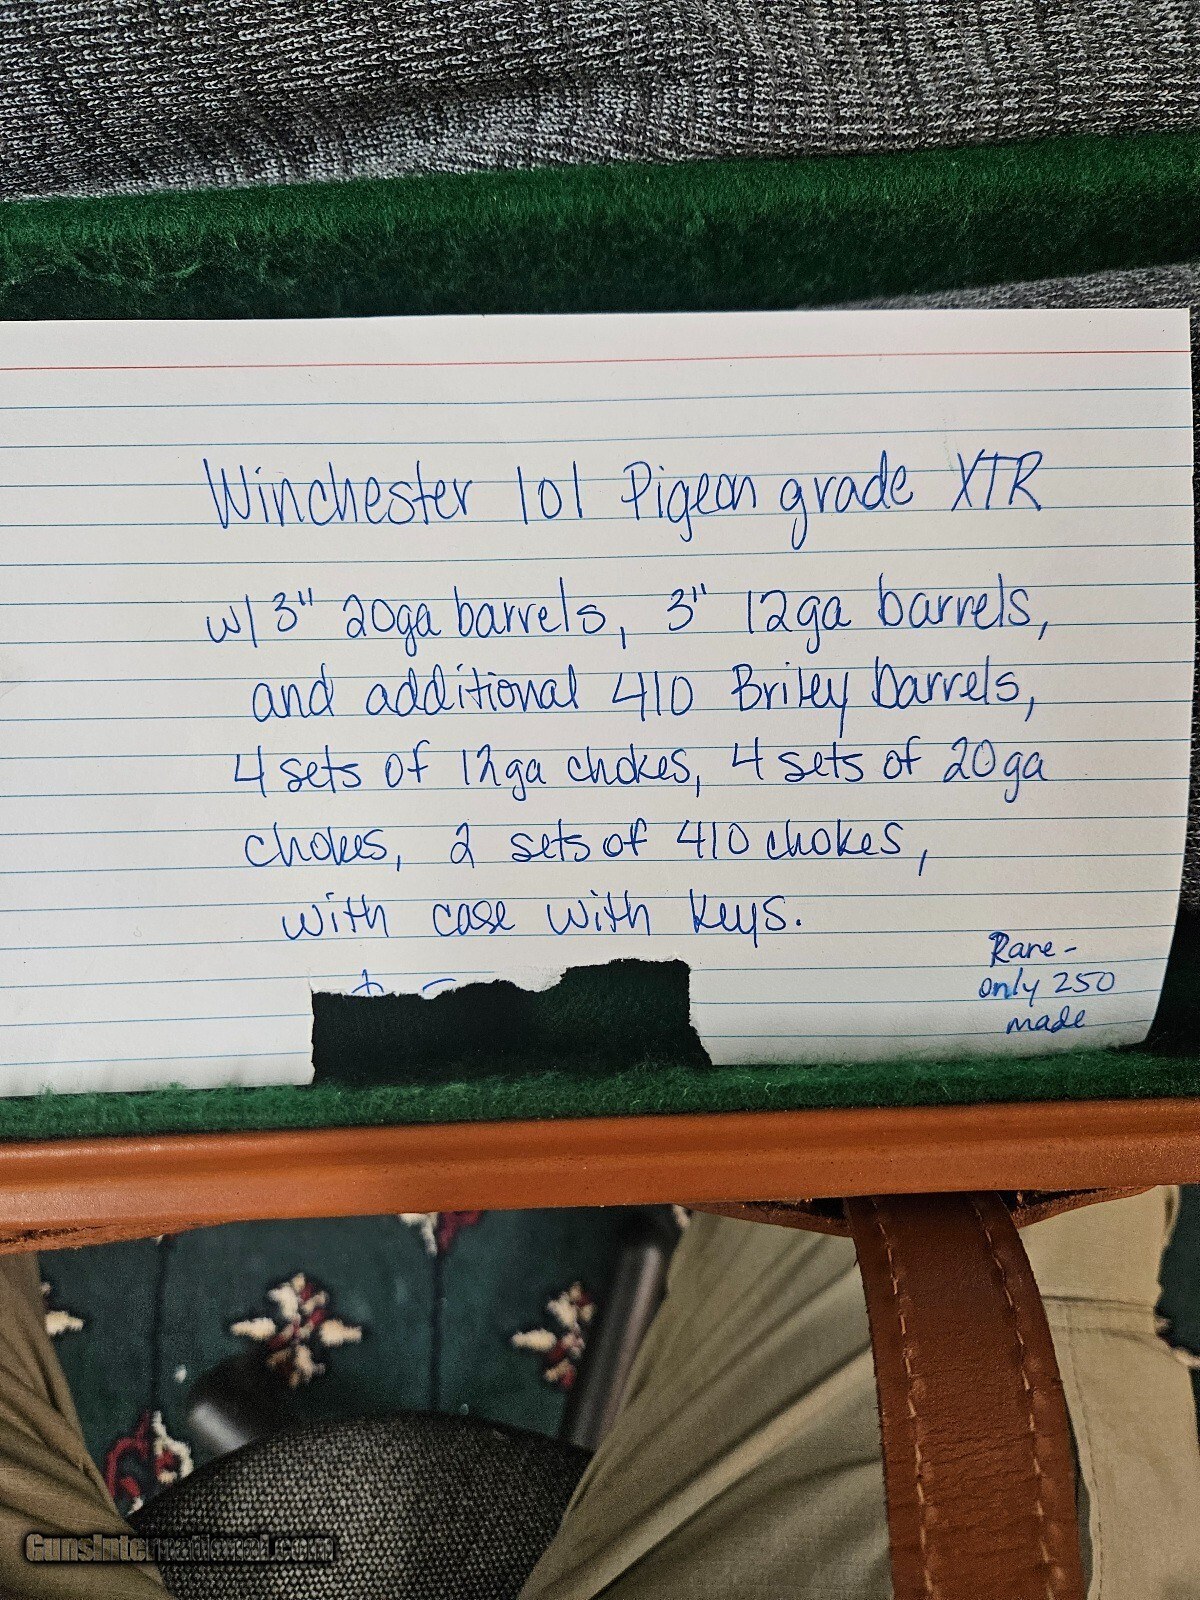 Winchester 101 Pigeon grade XTR
w/ 3" 20ga barrels, 3" 12ga barrels,
and additional 410 Briley barrels,
4 sets of 12ga chokes, 4 sets of 20ga
chokes, 2 sets of 410 chokes,
with case with keys.
Rare -
only 250
made
GunsInternational.com